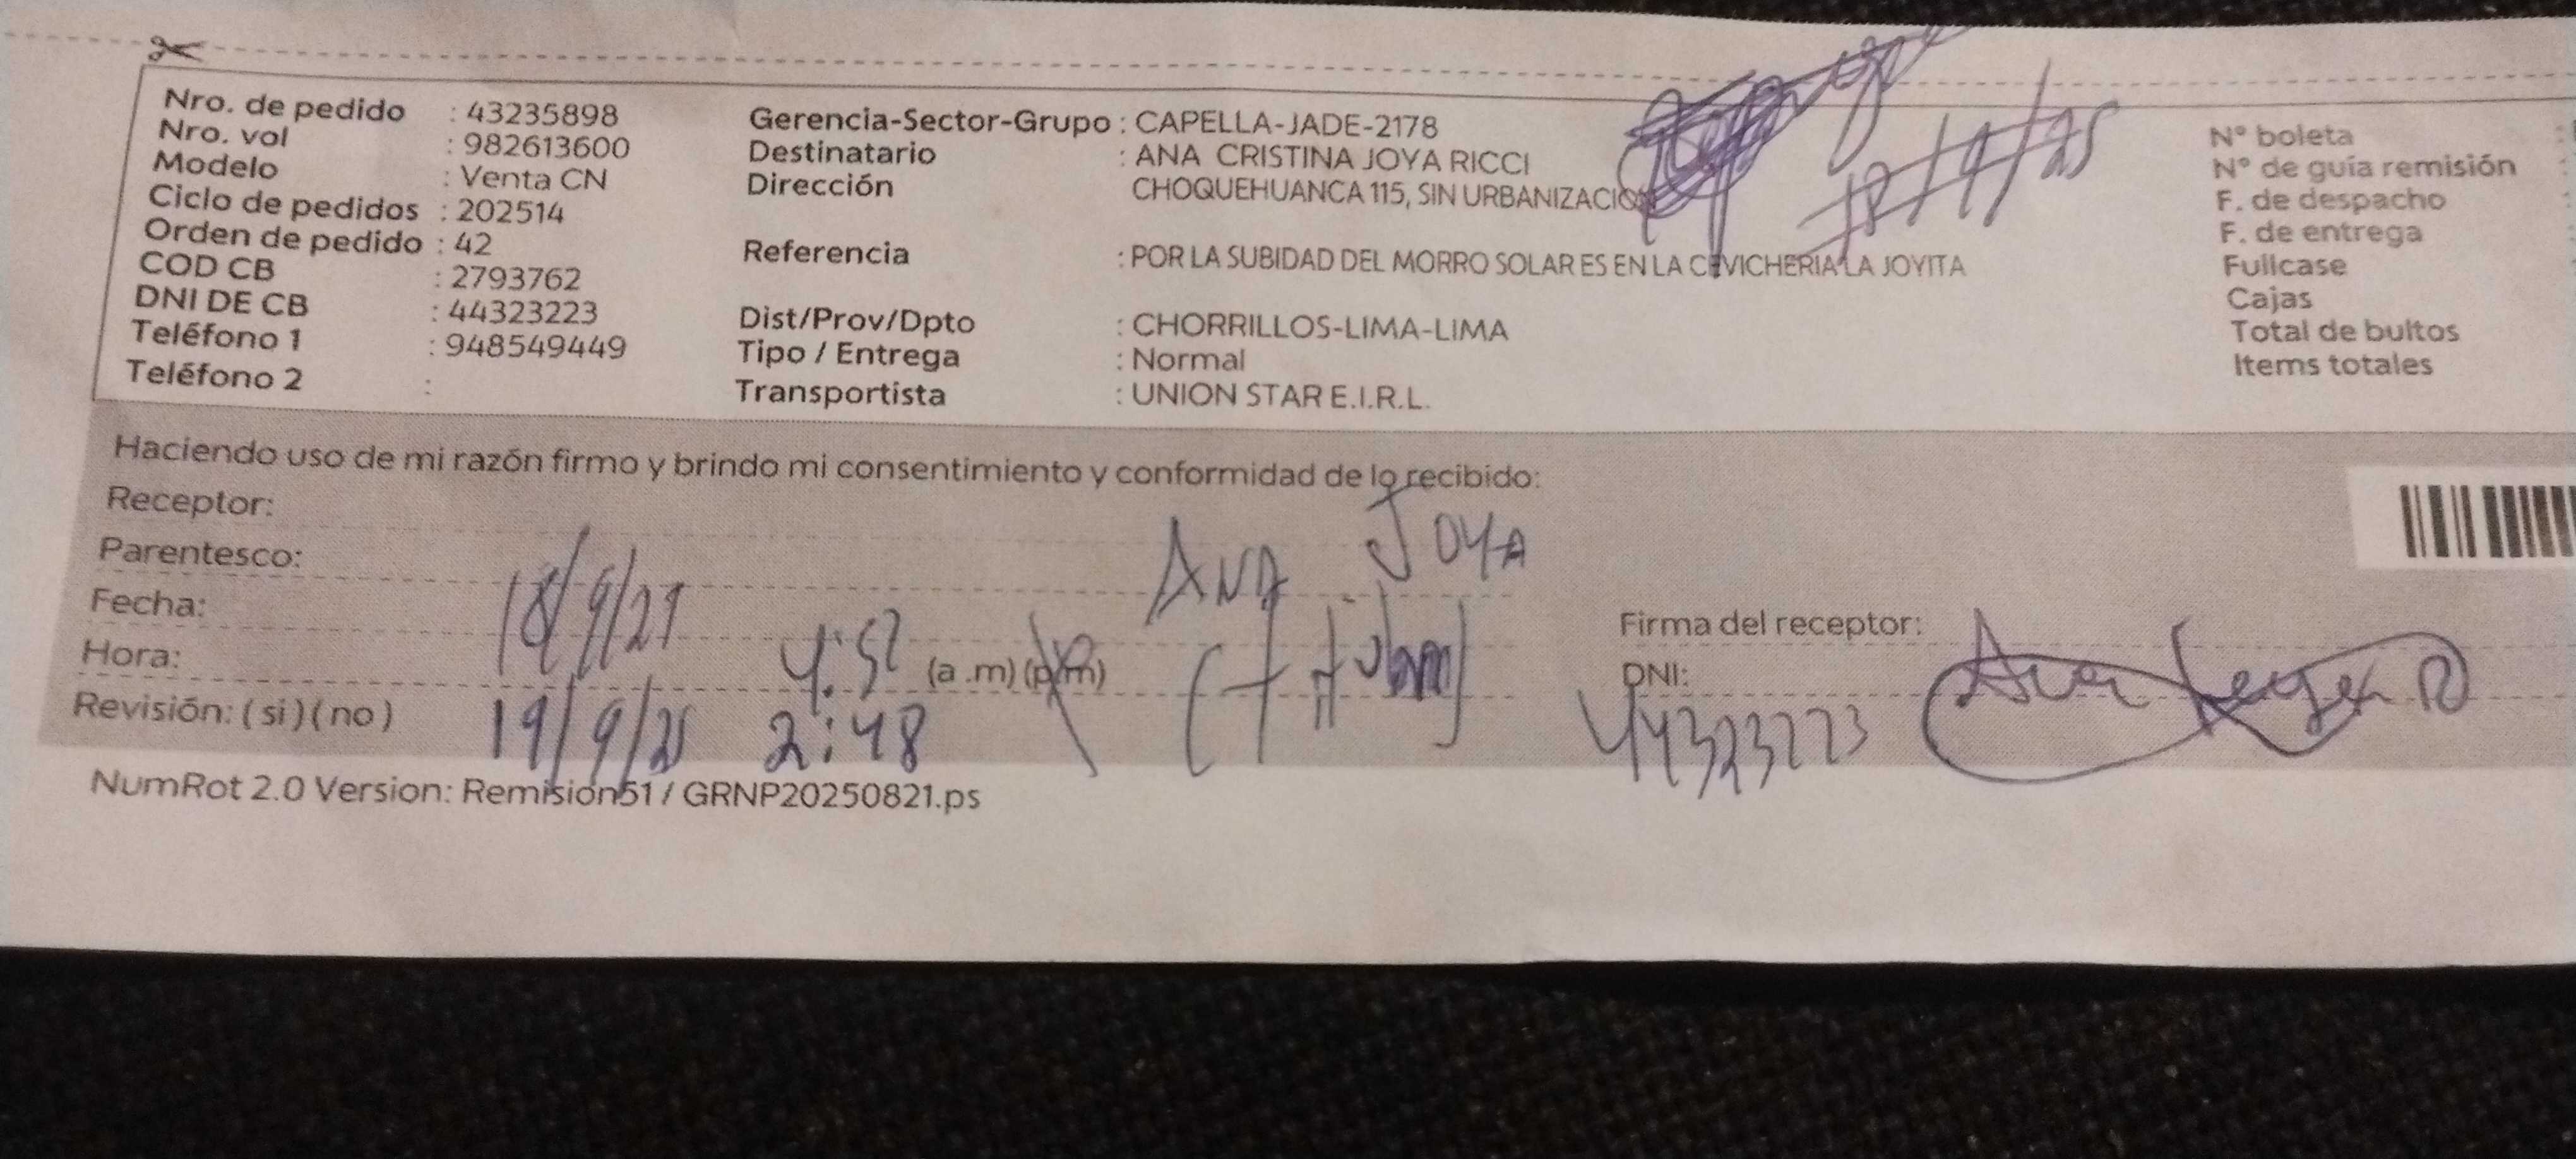 Nro. de pedido : 43235898
Nro. vol : 982613600
Modelo : Venta CN
Ciclo de pedidos : 202514
Orden de pedido : 42
COD CB : 2793762
DNI DE CB : 44323223
Teléfono 1 : 948549449
Teléfono 2 :
Gerencia-Sector-Grupo : CAPELLA-JADE-2178
Destinatario : ANA CRISTINA JOYA RICCI
Dirección CHOQUEHUANCA 115, SIN URBANIZACION
Referencia : POR LA SUBIDAD DEL MORRO SOLAR ES EN LA CEVICHERIA LA JOYITA
Dist/Prov/Dpto : CHORRILLOS-LIMA-LIMA
Tipo / Entrega : Normal
Transportista : UNION STAR E.I.R.L.
N° boleta :
N° de guía remisión :
F. de despacho :
F. de entrega
Fullcase
Cajas
Total de bultos
Items totales
Haciendo uso de mi razón firmo y brindo mi consentimiento y conformidad de lo recibido:
Receptor:
Parentesco:
Fecha:
Hora:
Revisión: ( si ) ( no )
18/9/21
19/9/25
4:52 (a .m) (p.m)
2:48
ANA JOYA
Firma del receptor:
DNI:
44323223
NumRot 2.0 Version: Remisión51 / GRNP20250821.ps